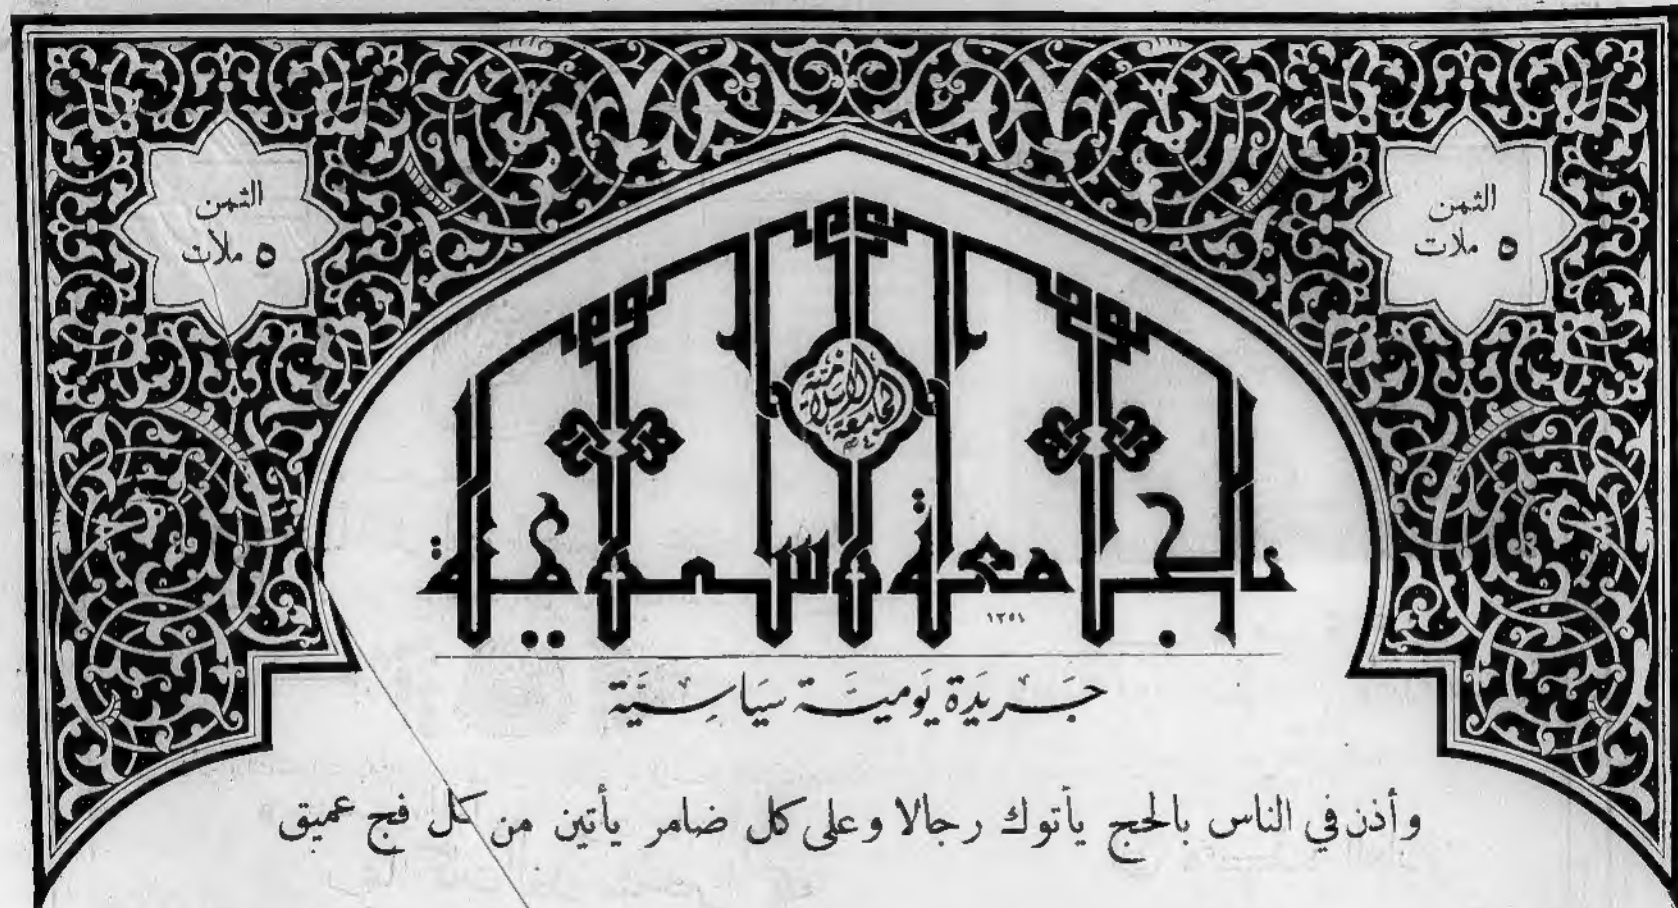 الثمن
٥ ملات
الثمن
٥ ملات
الجامعة الإسلامية
الجامعة الاسلامية
١٣٥١
جَريدَة يَوميَّة سيَاسِيَّة
وأذن في الناس بالحج يأتوك رجالا وعلى كل ضامر يأتين من كل فج عميق